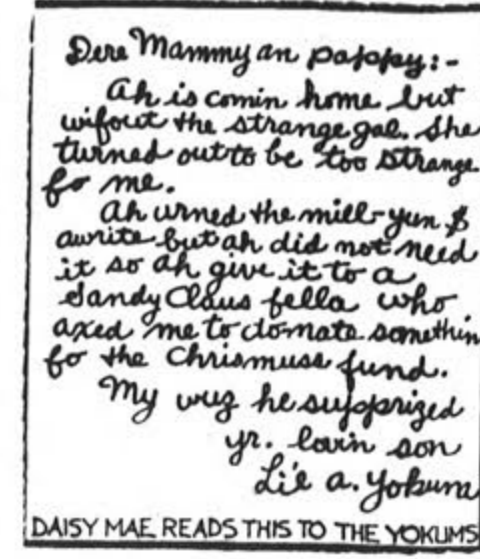 Dere Mammy an pappy:-
Ah is comin home but
wifout the strange gal. She
turned out to be too strange
fo me.
Ah urned the mill-yun $
awrite but ah did not need
it so ah give it to a
Sandy Claus fella who
axed me to domate somethin
fo the Chrismuss fund.
My wuz he supprized
yr. lovin son
Li'l a. Yokum
DAISY MAE READS THIS TO THE YOKUMS